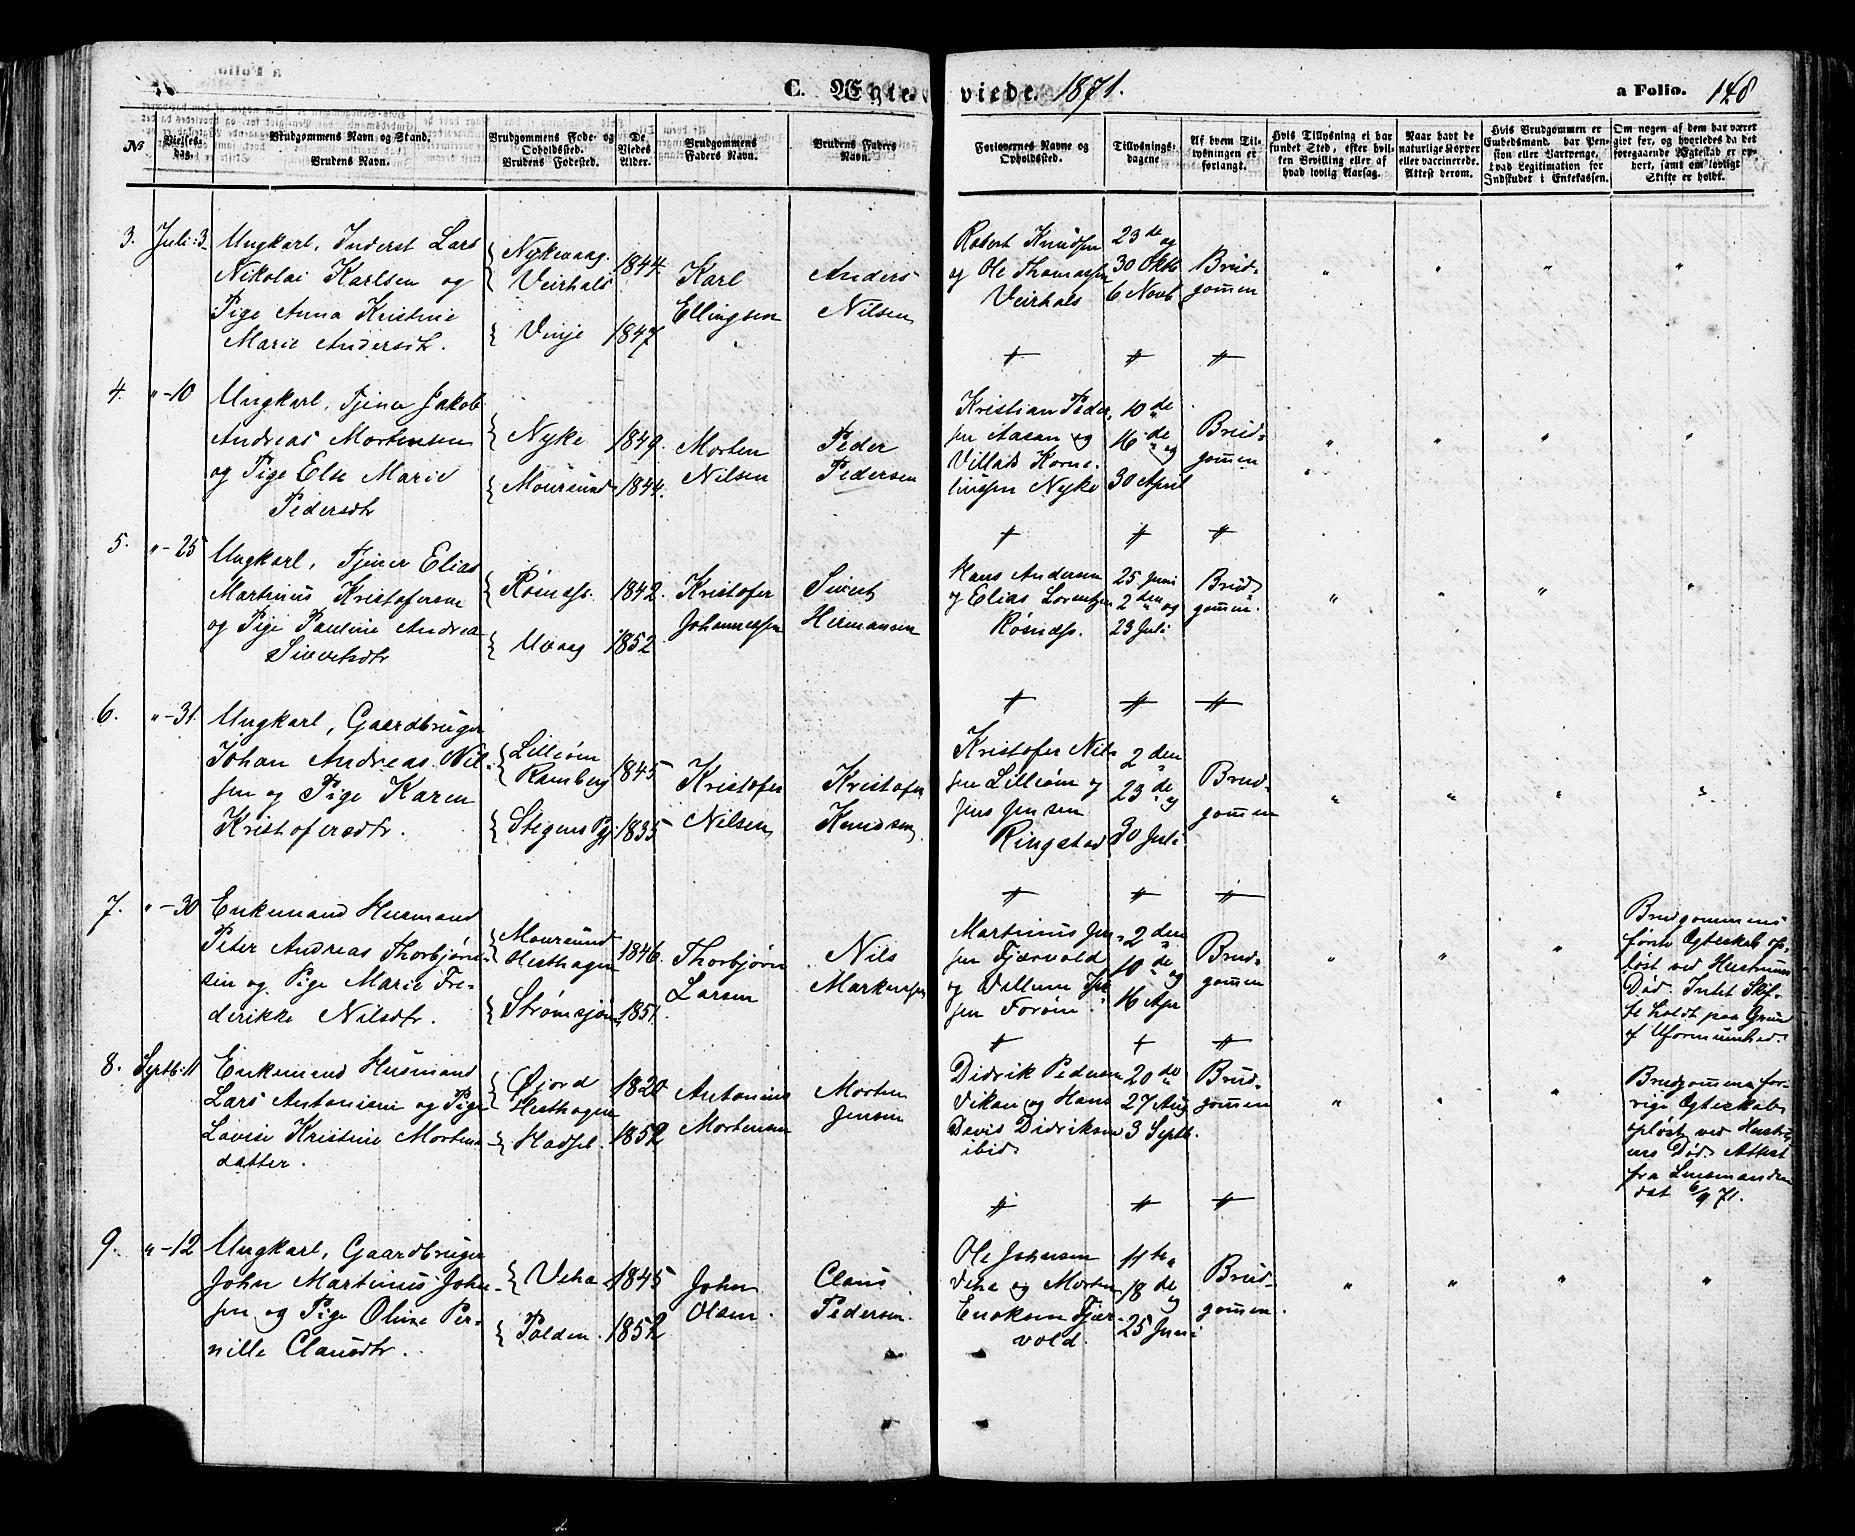 C. Ægteviede 1871. a Folio. 148
No
Vielsesdag.
Brudgommens Navn og Stand.
Brudens Navn.
Brudgommens Føde- og Opholdssted.
Brudens Fødested.
De Viedes Alder.
Brudgommens Faders Navn.
Brudens Faders Navn.
Forlovernes Navne og Opholdssted.
Tillysningsdagene
Af hvem Tillysningen er forlangt.
Hvis Tillysning ei har fundet Sted, efter hvilken Bevilling eller af hvad lovlig Aarsag.
Naar havt de naturlige Kopper eller vaccinerede. Attest derom.
Hvis Brudgommen er Gudedsmand, har Pension eller Vartpenge, hvad Legitimation for Indskudet i Enkekassen.
Om nogen af dem har været gift før, og hvorledes da det foregaaende Ægteskab er ophørt, samt om lovligt Skifte er holdt.
3. Juli: 3.
Ungkarl, Inderst Lars
Nikolai Karlsen og
Pige Anna Kristine
Marie Andersdtr.
Nykvaag.
Veirhals
Vinje
1844.
1847
Karl
Ellingsen
Anders
Nilsen
Robert Knudsen
og Ole Thomassen
Veirhals
23de og
30 Oktb
6 Novb
Brud-
gommen
4. " - 10
Ungkarl, Tjener Jakob
Andreas Mortensen
og Pige Else Marie
Pedersdtr
Nyke
Moursund
1849.
1844.
Morten
Nilsen
Peder
Pedersen
Kristian Peder
sen Aasan og
Villads Korne-
liussen Nyke
10de
16de og
30 April
Brud-
gommen
5. " - 25
Ungkarl, Tjener Elias
Martinus Kristofersen
og Pige Pauline Andrea
Sivertsdtr
Røsnæs.
Uvaag
1842.
1852
Kristofer
Johannessen
Sivert
Hermansen
Hans Andersen
og Elias Lorentzen
Røsnæs.
25 Juni
2den og
23 Juli
Brud-
gommen.
6. " - 31.
Ungkarl, Gaardbruger
Johan Andreas Nil-
sen og Pige Karen
Kristofersdtr.
Lilliøen
Ramberg
Stegens Pgj.
1845
1835
Kristofer
Nilsen
Kristofer
Knudsen
Kristofer Nil-
sen Lilliøen og
Jens Jensen
Ringstad
2den
23de og
30 Juli
Brud-
gommen
7. " - 30
Enkemand Husmand
Peter Andreas Thorbjørn-
sen og Pige Marie Fre-
derikke Nilsdtr.
Moursund
Hesthagen
Strømsjøen
1846.
1851.
Thorbjørn
Larsen
Nils
Markussen
Martinus Jen-
sen Fjærvold
og Villum
sen Forøen
2den
10de og
16 Apr
Brud-
gommen
Brudgommens
første Ægteskab op-
løst ved Hustruens
Død. Intet Skif-
te holdt paa Grund
af Uformuenhed.
8. Septb: 11
Enkemand Husmand
Lars Antonisen og Pige
Lovise Kristine Mortens-
datter.
Øjord
Hesthagen
Hadsel.
1820
1852
Antonius
Mortensen
Morten
Jensen
Didrik Pedersen
Viken og Hans
Devis Didriksen
ibid.
20de
27 Aug
3 Septb.
Brud-
gommen
Brudgommens for-
rige Ægteskab
opløst ved Hustru-
ens Død. Attest
fra Lensmanden
dat 6/9 71.
9. " - 12
Ungkarl, Gaardbruger
John Martinus John-
sen og Pige Oline Per-
nille Clausdtr.
Veha
Polden.
1845
1852
John
Olsen.
Claus
Pedersen.
Ole Johnsen
Veha og Morten
Enoksen Fjær-
vold.
11te
18de og
25 Juni
Brud-
gommen.